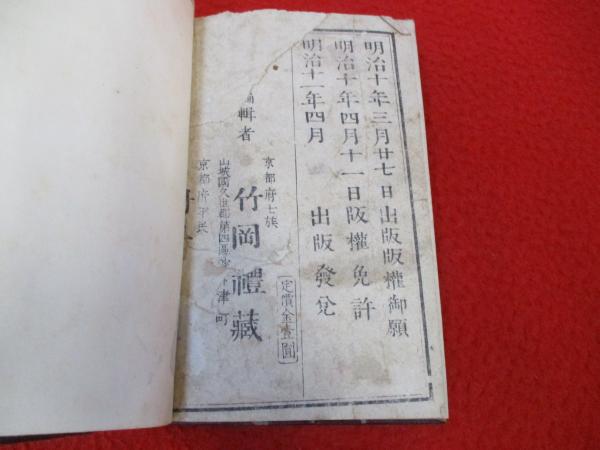 明治十年三月廿七日出版版權御願
明治十年四月十一日版權免許
明治十一年四月 出版發兌
定價金壹圓
京都府士族
輯者 竹岡禮藏
山城國久世郡第四區 津町
京都府平民